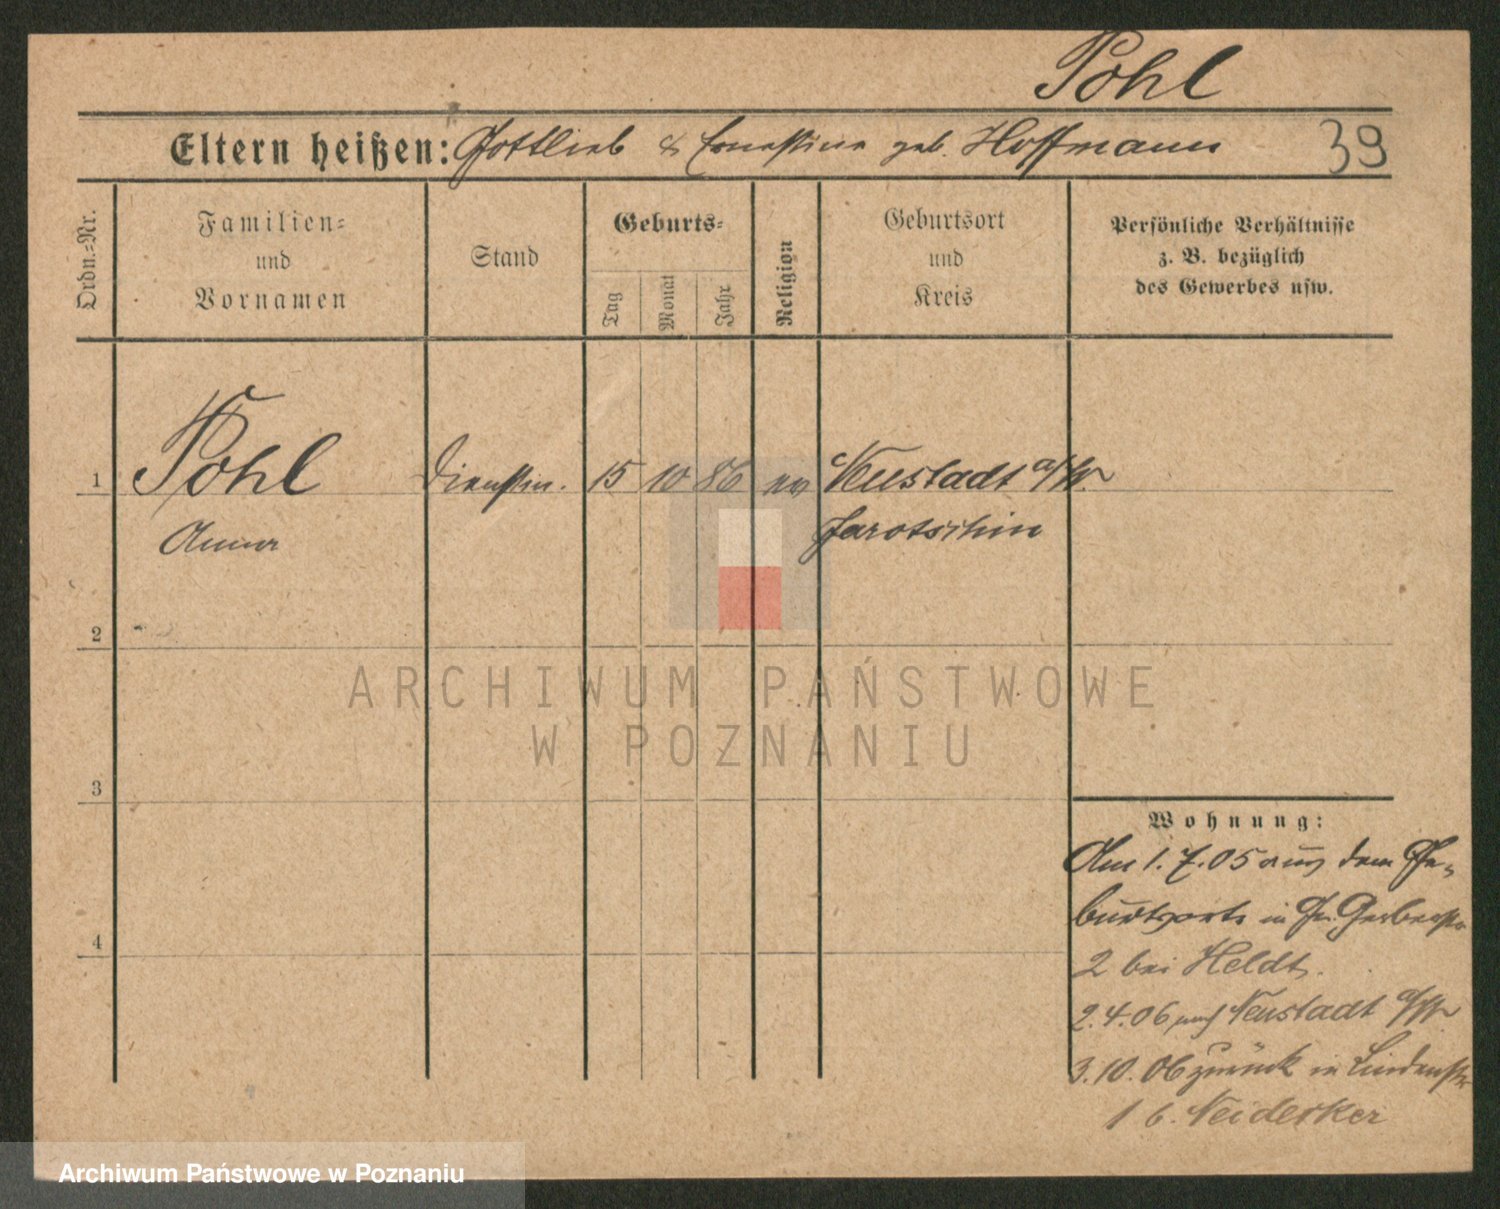 Pohl
Eltern heißen: Gottlieb & Ernestine geb. Hoffmann 39
Ordn.=Nr.
Familien=
und
Vornamen
Stand
Geburts=
Tag
Monat
Jahr
Religion
Geburtsort
und
Kreis
Persönliche Verhältnisse
z. B. bezüglich
des Gewerbes usw.
1 Pohl Dienstm. 15 10 86 ev Neustadt a/W.
Anna Jarotschin
2
3
4
Wohnung:
Am 1.7.05 aus dem Ge-
burtsorte in Gerberstr
2 bei Heldt.
2.4.06 nach Neustadt a/W
3.10.06 zurück in Lindenstr
1 b. Neidecker
ARCHIWUM PAŃSTWOWE
W POZNANIU
Archiwum Państwowe w Poznaniu